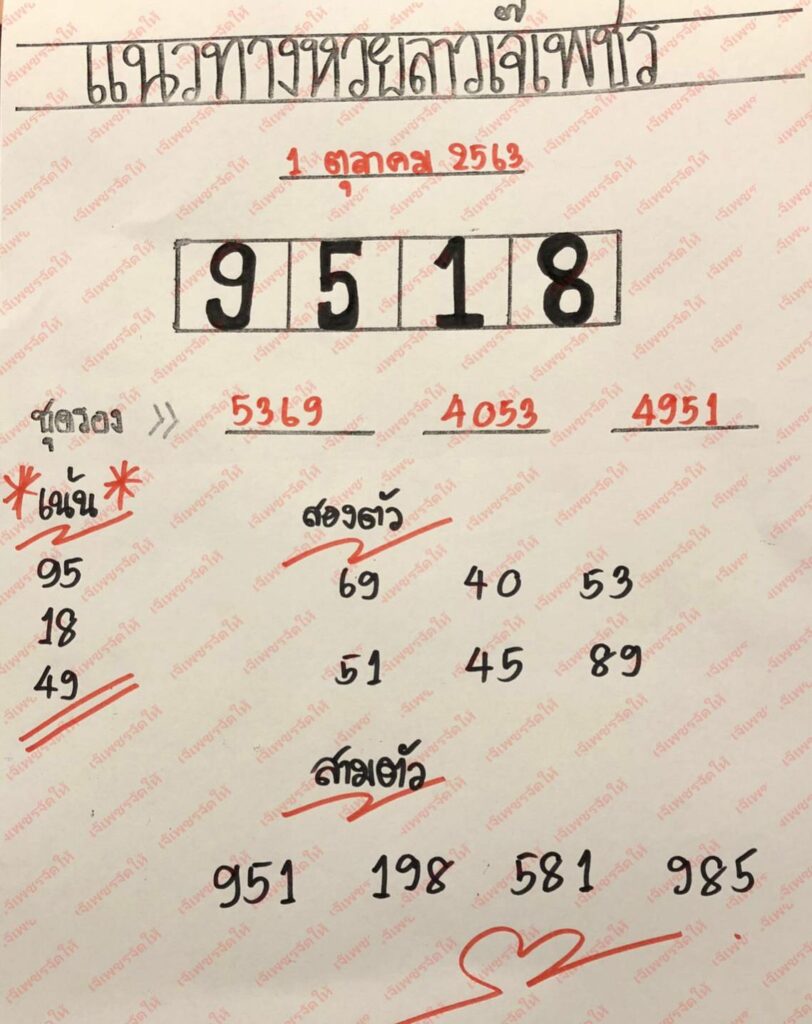 แนวทางหวยลาวเจ๊เพชร
1 ตุลาคม 2563
9 5 1 8
ชุดรอง >> 5369 4053 4951
*เน้น*
95
18
49
สองตัว
69 40 53
51 45 89
สามตัว
951 198 581 985
เจ๊เพชรจัดให้